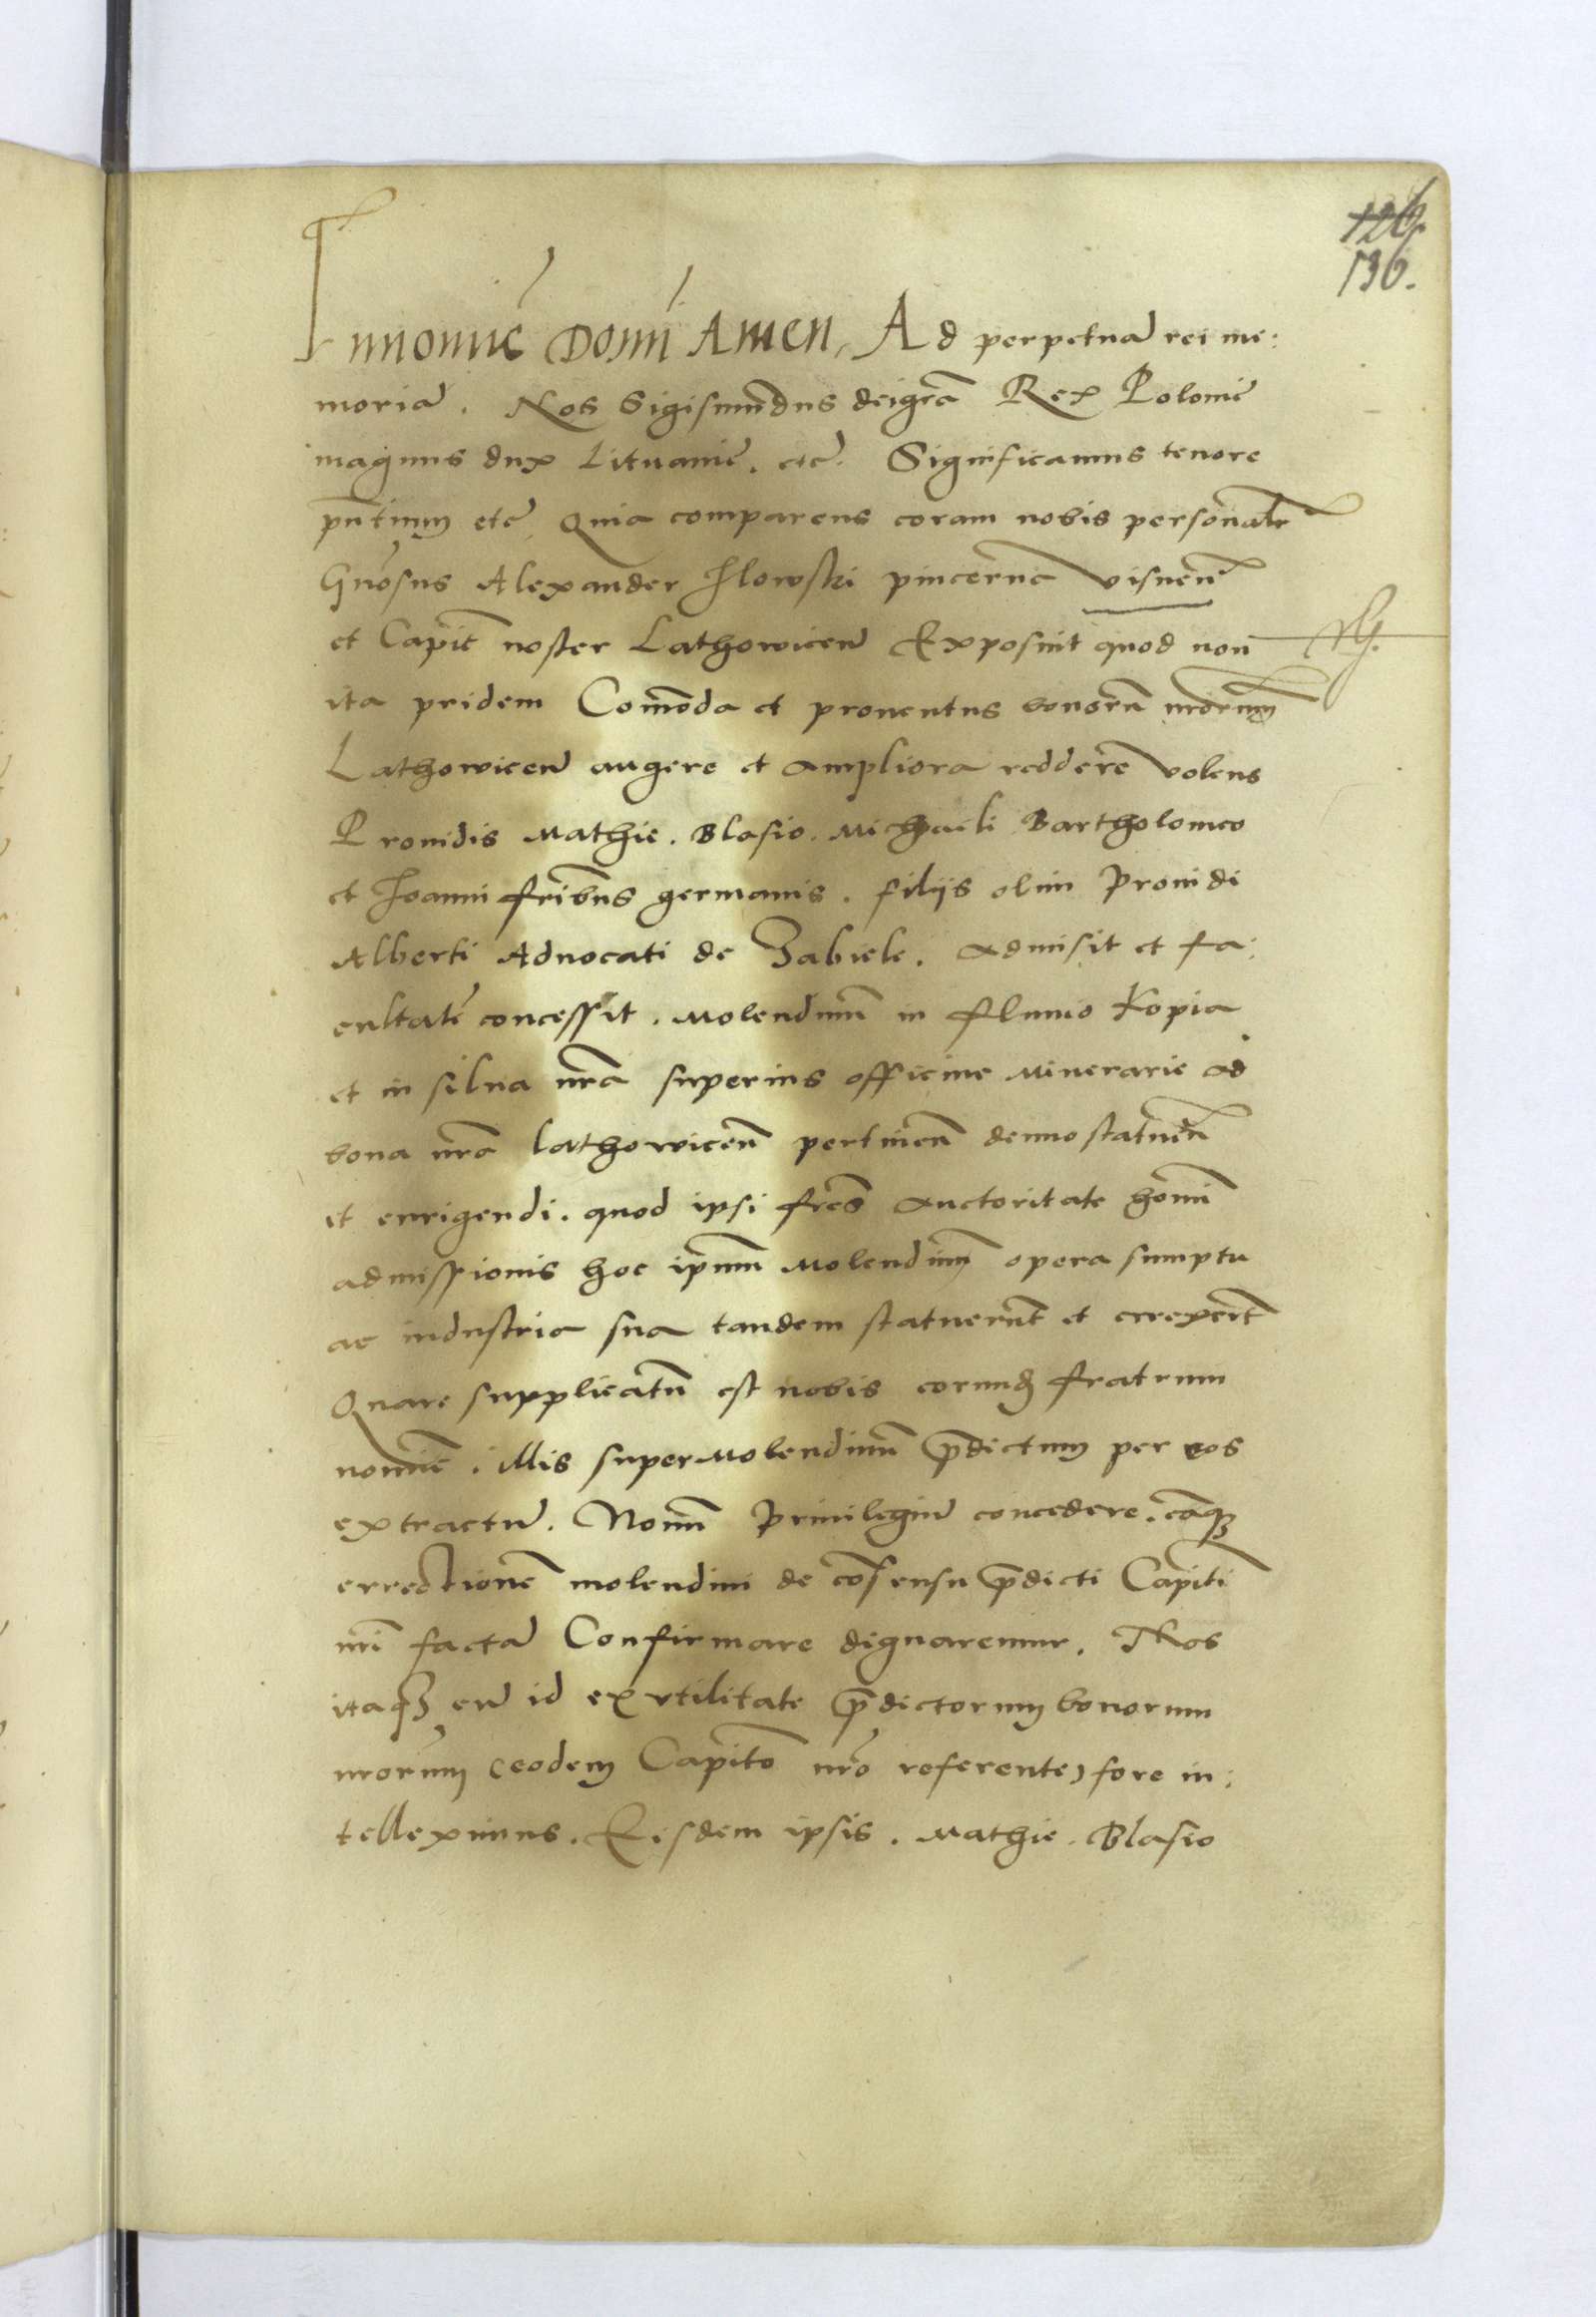 126.
136.
Innomie Domi Amen, Ad perpetuã rei me:
moriã. Nos Sigismũdus deigrã Rex Polonie
magnus dux Lituanie. etc. Significamus tenore
pñtium etc Quia comparens coram nobis personalr
Gnosus Alexander Ilowski pincerna visnen
et Capit noster Lathowicen Exposuit quod non
ita pridem Comoda et prouentus bonorũ nrorum
Lathowicen augere et ampliora reddere volens
Prouidis Mathie. Blasio. Michaeli Bartholomeo
et Joanni fribus germanis. filijs olim Prouidi
Alberti Aduocati de Zabiele. admisit et fa:
cultatẽ concessit. Molendinũ in fluuio Kopia
et in silua nrã superius officine Minerarie ad
bona nrã lathowicen pertinen denuo statuen
et enrigendi. quod ipsi fres auctoritate homõi
admissionis hoc ipmũ Molendinũ opera sumptu
ac industria sua tandem statuerũt et errexert
Quare supplicatũ est nobis eorund fratrum
nomine. illis super Molendinũ p̃dictum per eos
extractũ. Nomũ Priuilegiũ concedere. eãq3
errectionẽ molendini de cõsensu p̃dicti Capiti
nri factã Confirmare dignaremur. Nos
itaq3 cũ id ex vtilitate p̃dictorum bonorum
nrorum (eodem Capito nro referente) fore in:
telleximus. Eisdem ipsis. Mathie. Blasio